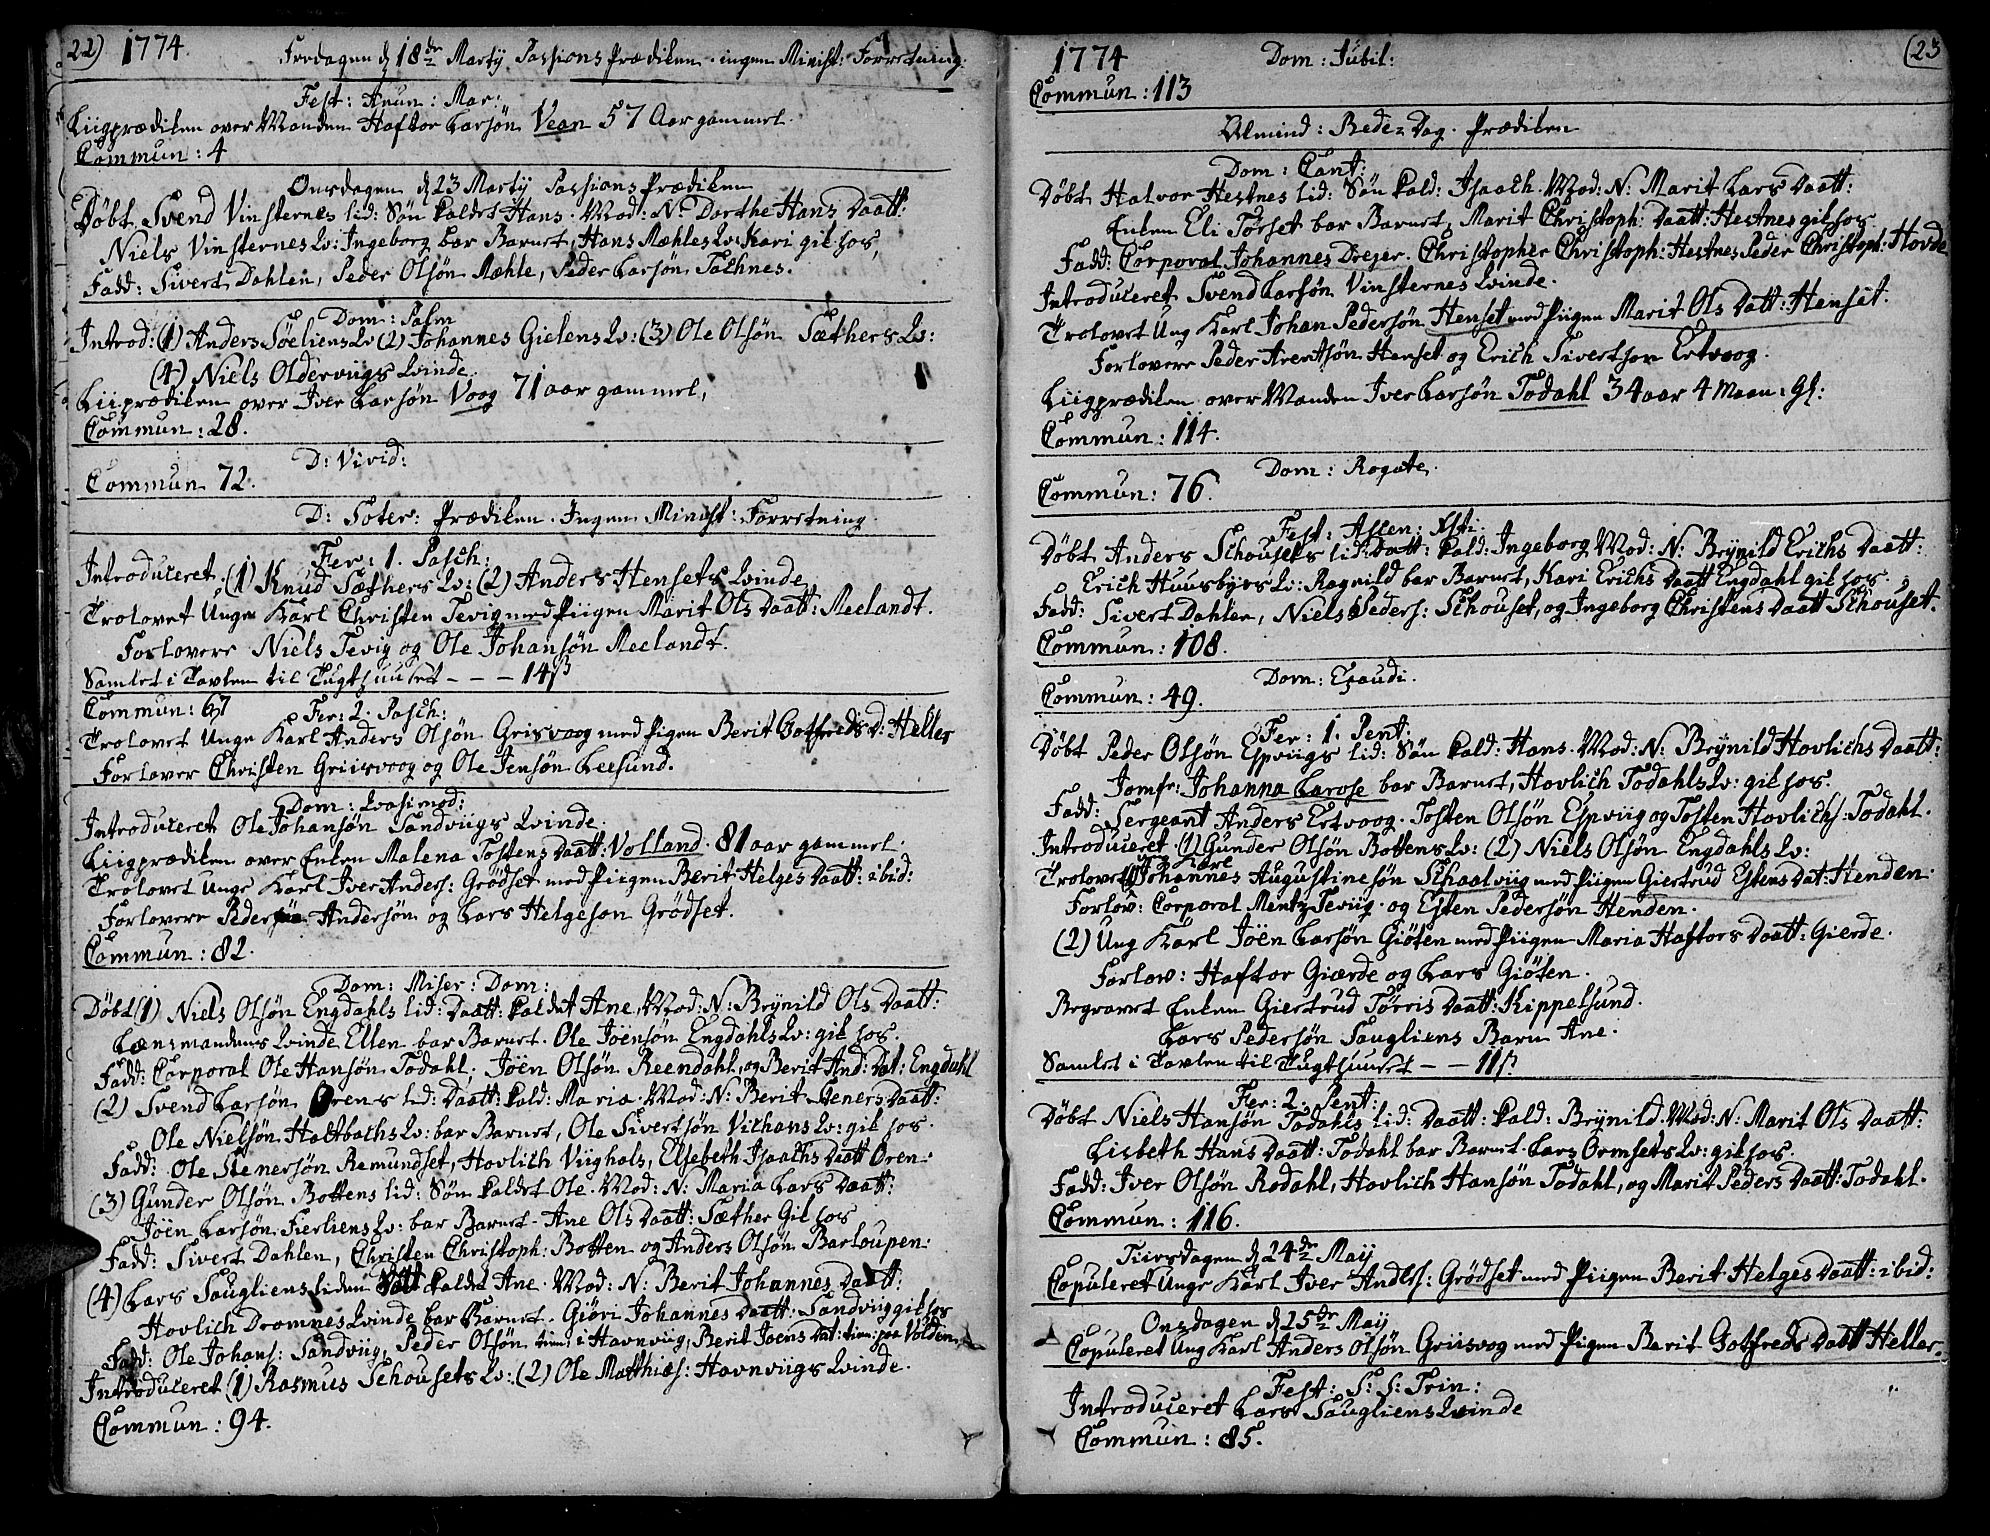 22) 1774.
Fredagen d 18de Martij Passions Prædiken ingen Minist: Forretning.
Fest: Anun: Mar:
Liigprædiken over Manden Haftor Larsön Vean 57 Aar gammel.
Commun: 4
Onsdagen d 23 Martij Passions Prædiken
Döbt Svend Vinsternes lid: Sön kaldet Hans. Mod: N: Dorthe Hans Daatt:
Niels Vinsternes Qv: Ingeborg bar Barnet, Hans Mæhles Qv: Kari gik hos,
Fadd: Sivert Dahlen, Peder Olsön Mæhle, Peder Larsön Tachnes.
Dom: Palm
Introd: (1) Anders Söeliens Qv (2) Johannes Gielens Qv: (3) Ole Olsön Sæthers Qv:
(4) Niels Olderviigs Qvinde.
Liiprædiken over Iver Larsön Voog 71 aar gammel,
Commun: 28.
D: Virid:
Commun 72.
D: Soter: Prædiken. Ingen Minist: Forretning.
Fer: 1. Pasch:
Introduceret. (1) Knud Sæthers Qv: (2) Anders Hensets Qvinde
Trolovet Unge Karl Christen Tevig med Piigen Marit Ols Daatt: Meelandt.
Forlovere Niels Tevig og Ole Johansön Meelandt.
Samlet i Tavlen til Tugthuuset - - - 14ß
Commun: 67
Fer: 2. Pasch:
Trolovet Unge Karl Anders Olsön Grisvoog med Pigen Berit Gotfreds D: Heller
Forlover Christen Griisvoog og Ole Jensön Leesund.
Dom: Qvasimod:
Introduceret Ole Johansön Sandviigs Qvinde.
Liigprædiken over Enken Malena Tostens Daatt: Volland. 81 aar gammel.
Trolovet Unge Karl Iver Anders: Grödset med Piigen Berit Helges Daatt: ibid:
Forlovere Peder Andersön og Lars Helgeson Grödset.
Commun: 82.
Dom: Miser: Dom:
Döbt (1) Niels Olsön Engdahls lid: Daatt: kaldet Ane, Mod: N: Brynild Ols Daatt:
Lænsmandens Qvinde Ellen bar Barnet. Ole Jöensön Engdahls Qv: gik hos.
Fadd: Corporal Ole Hansön Todahl, Jöen Olsön Reendahl, og Berit And: Dat: Engdahl
(2) Svend Larsön Örens lid: Daatt: kald: Maria. Mod: N: Berit Steners Daatt:
Ole Nielsön Haltbachs Qv: bar Barnet, Ole Sivertsön Vichans Qv: gik hos.
Fadd: Ole Stenersön Remundset, Hovlich Viighals, Elsebeth Isaachs Daatt Ören.
(3) Gunder Olsön Bottens lid: Sön kaldet Ole. Mod: N: Maria Lars Daatt:
Jöen Larsön Fierliens Qv: bar Barnet. Ane Ols Daatt: Sæther Gik hos
Fadd: Sivert Dahlen, Christen Christoph: Botten og Anders Olsön Barloupen.
(4) Lars Saugliens liden Datt kaldet Ane. Mod: N: Berit Johannes Daatt:
Hovlich Dromnes Qvinde bar Barnet. Giöri Johannes Daatt: Sandviig gik hos
Fadd: Ole Johans: Sandviig, Peder Olsön tien: i Havnviig, Berit Joens Dat: tien: paa Volden
Introduceret (1) Rasmus Schousets Qv: (2) Ole Matthias: Havnviigs Qvinde.
Commun: 94.
1774 Dom: Jubil: (23
Commun: 113
Almind: Bede=Dag. Prædiken
Dom: Cant:
Döbt Halvor Hestnes lid: Sön kald: Isaach. Mod: N: Marit Lars Daatt:
Enken Eli Torset bar Barnet, Marit Christoph: Daatt: Hestnes gik hos
Fadd: Corporal Johannes Drejer. Christopher Christoph: Hestnes Peder Christoph: Hovde
Introduceret Svend Larsön Vinsternes Qvinde.
Trolovet Ung Karl Johan Pedersön Henset med Piigen Marit Ols Datt: Henset.
Forlovere Peder Arentsön Henset og Erich Sivertson Ertvoog.
Liigprædiken over Manden Iver Larsön Todahl 34 aar 4 Maan: Gl:
Commun: 114.
Dom: Rogate.
Commun: 76.
Fest: Ascen: Xsti.
Döbt Anders Schousets lid: Datt: kald: Ingeborg Mod: N: Brynild Erichs Daatt:
Erich Huusbyes Qv: Ragnild bar Barnet, Kari Erichs Daatt Engdahl gik hos.
Fadd: Sivert Dahlen, Niels Peders: Schouset, og Ingeborg Christens Daatt Schouset.
Commun: 108.
Dom: Exaudi.
Commun: 49.
Fer: 1. Pent:
Döbt Peder Olsön Espviigs lid: Sön kald: Hans. Mod: N: Brynild Hovlichs Daatt:
Jomfr: Johanna Larose bar Barnet, Hovlich Todahls Qv: gik hos.
Fadd: Sergeant Anders Ertvoog. Tosten Olsön Espviig og Tosten Hovlichs: Todahl.
Introduceret (1) Gunder Olsön Bottens Qv: (2) Niels Olsön Engdahls Qv:
Trolovet (1) Johannes Augustinesön Schaalviig med Piigen Giertrud Estens Dat: Henden.
Forlov: Corporal Mentz Teviig. og Esten Pedersön Henden.
(2) Ung Karl Jöen Larsön Giöten med Piigen Maria Haftors Daatt: Gierde.
Forlov: Haftor Giærde og Lars Giöten.
Begravet Enken Giertrud Törris Daatt: Kippelsund.
Lars Pedersön Saugliens Barn Ane.
Samlet i Tavlen til Tugthuuset - - 11ß
Fer: 2. Pent:
Döbt Niels Hansön Todahls lid: Daatt: kald: Brynild. Mod: N: Marit Ols Daatt:
Lisbeth Hans Daatt: Todahl bar Barnet. Lars Ormsets Qv: gik hos.
Fadd: Iver Olsön Rodahl, Hovlich Hansön Todahl, og Marit Peders Daatt: Todahl.
Commun: 116.
Tiirsdagen d 24de Maij
Copuleret Unge Karl Iver Anders: Grödset med Piigen Berit Helges Daatt: ibid:
Onsdagen d 25de Maij
Copuleret Ung Karl Anders Olsön Griisvog med Pigen Berit Gotfreds Daatt Heller.
Fest: S: S: Trin:
Introduceret Lars Saugliens Qvinde
Commun: 85.